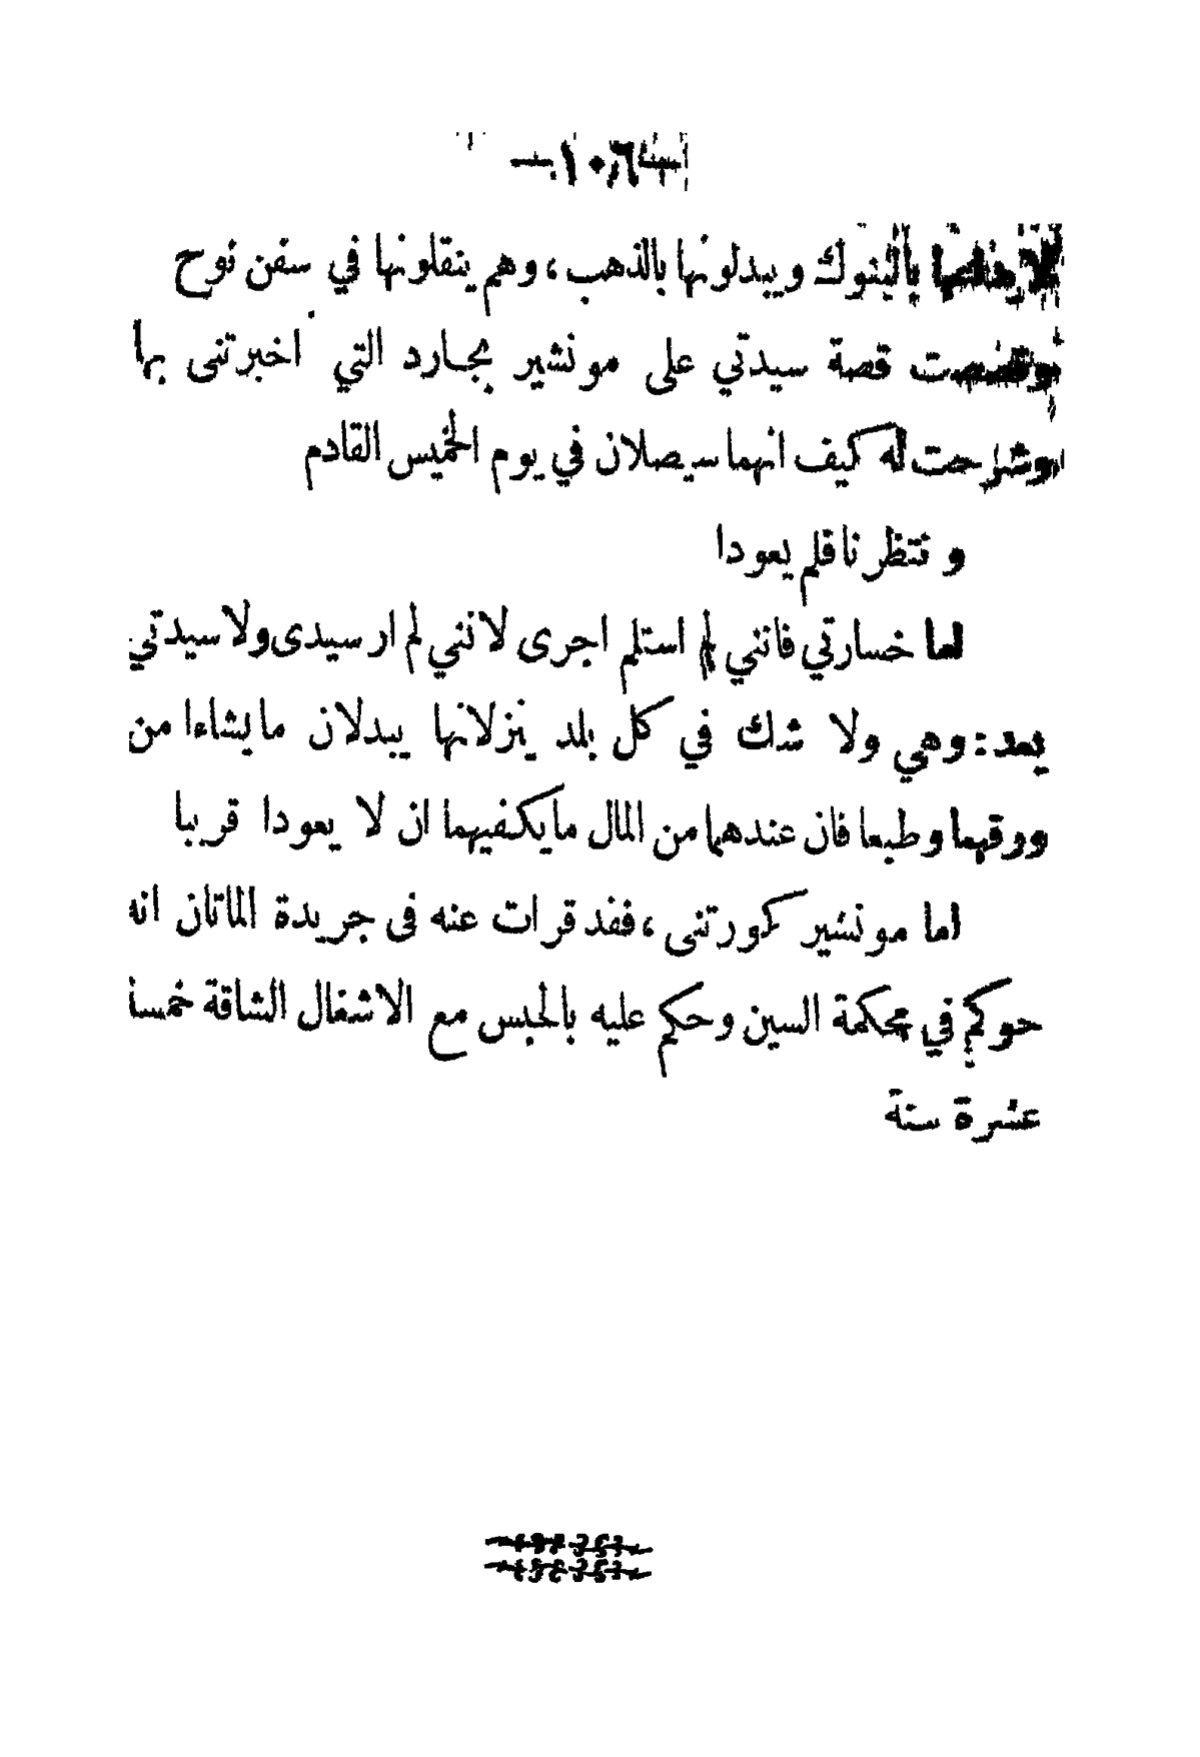 —١٠٦—
بالبنوك ويبدلونها بالذهب، وهم ينقلونها في سفن نوح
وقصصت قصة سيدتي على مونشير بجارد التي اخبرتنى بها
وشرحت له كيف انهما سيصلان في يوم الخميس القادم
و نتظرنا فلم يعودا
اما خسارتي فانني لم استلم اجرى لانني لم ار سيدى ولا سيدتي
بعد: وهي ولا شك في كل بلد ينزلانها يبدلان ما يشاءا من
ورقهما وطبعا فان عندهما من المال ما يكفيهما ان لا يعودا قريبا
اما مونشير كورتنى، فقد قرات عنه فى جريدة الماتان انه
حوكم في محكمة السين وحكم عليه بالحبس مع الاشغال الشاقة خمسة
عشرة سنة